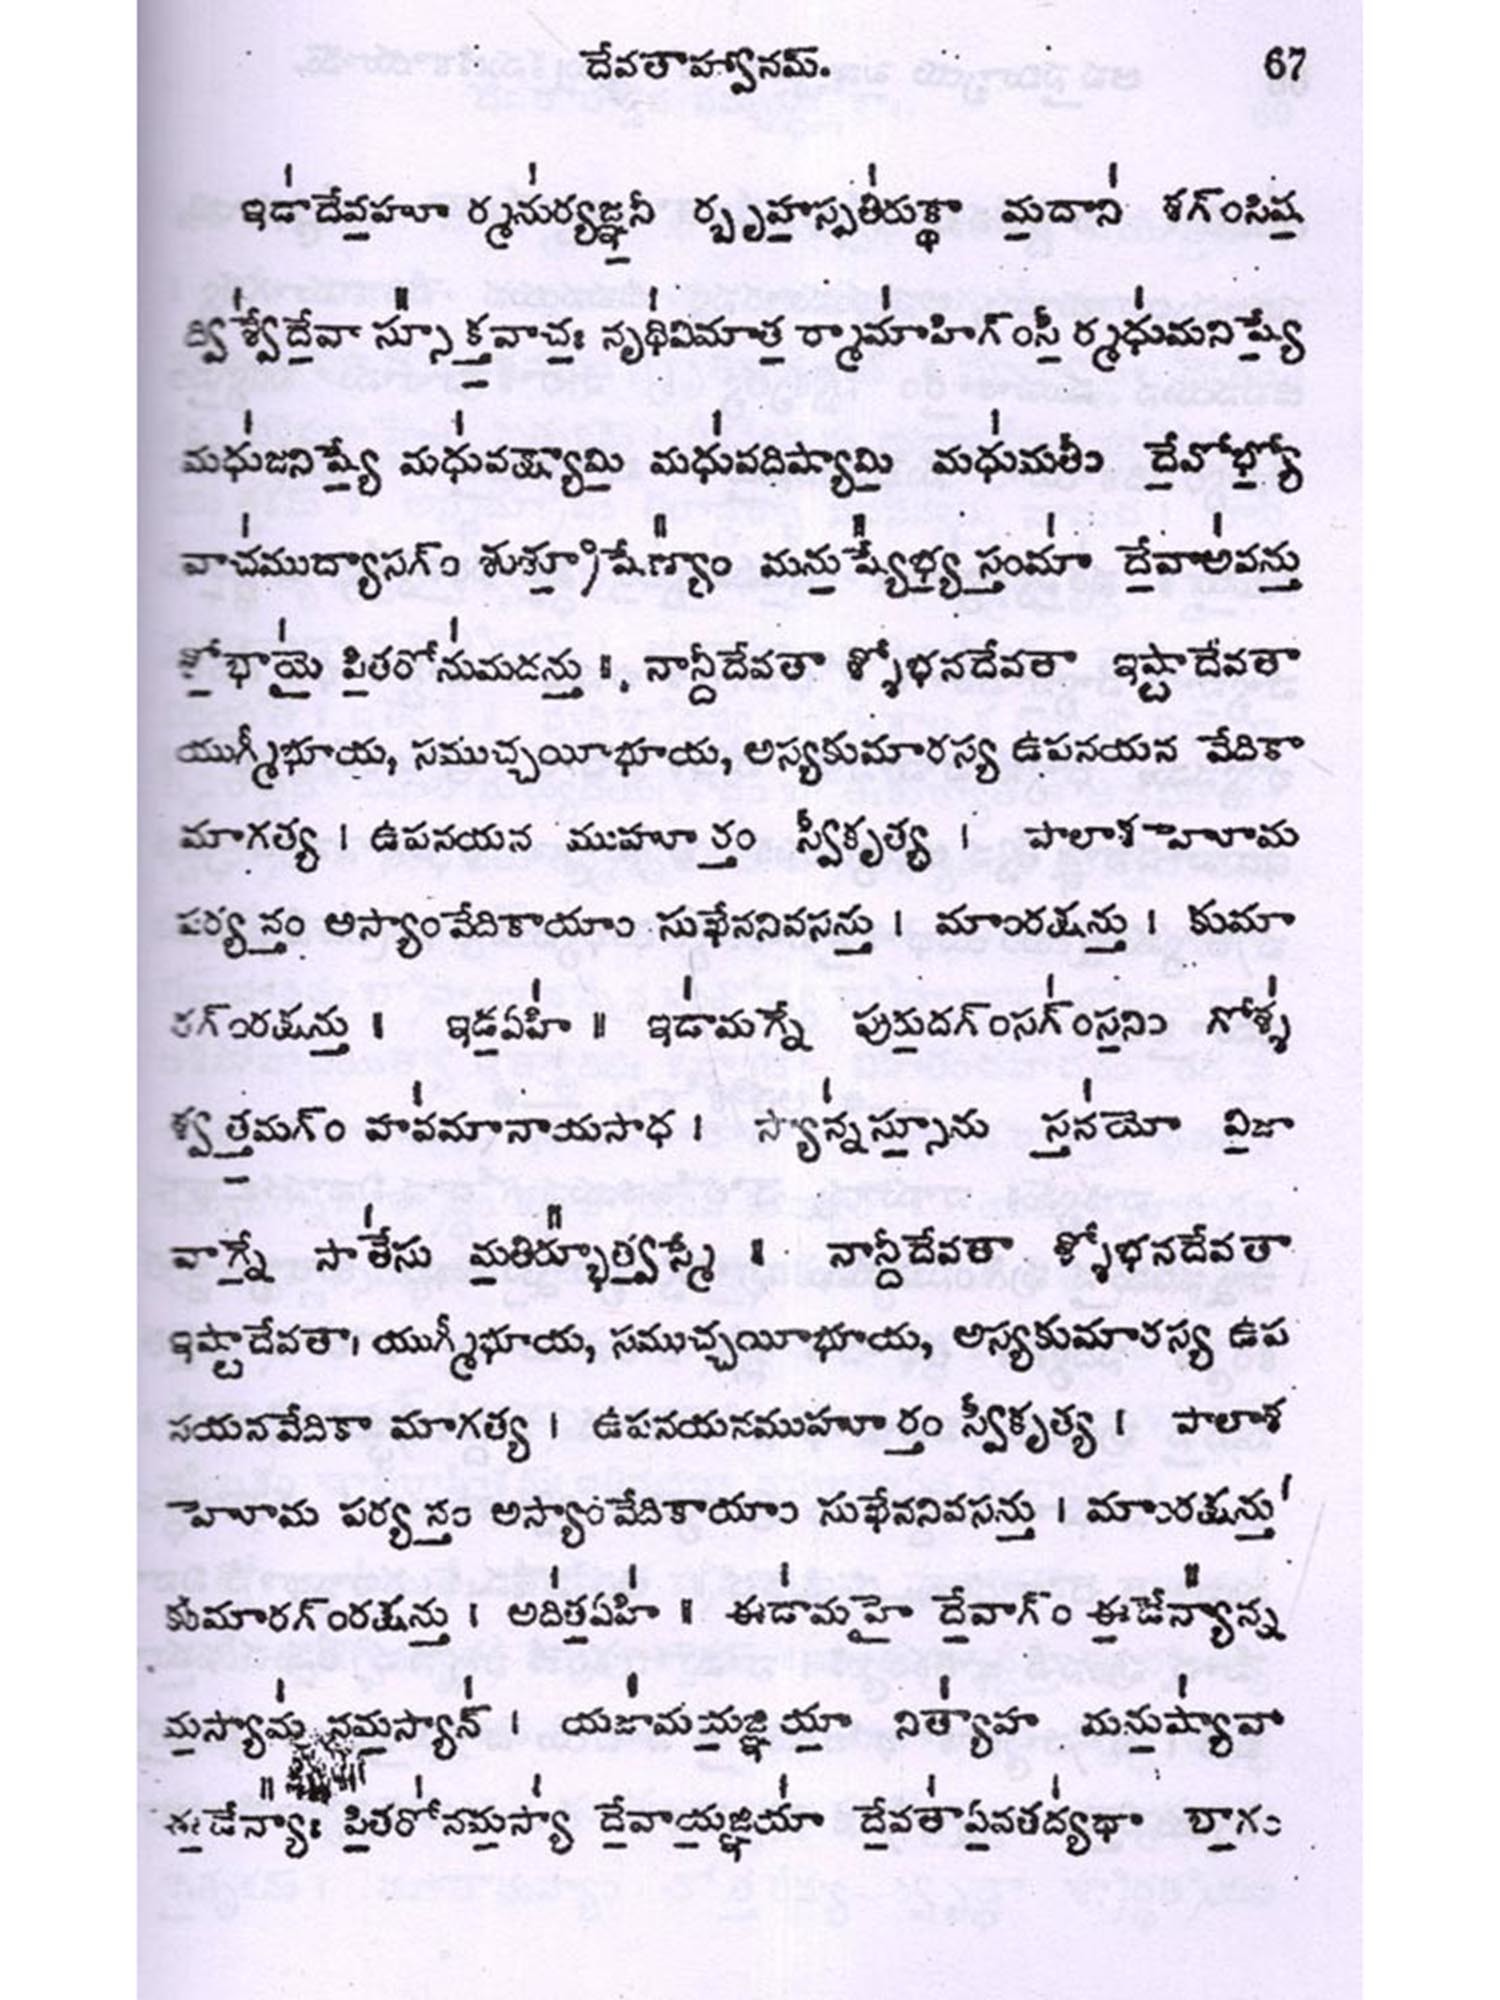 దేవతాహ్వానమ్. 67
ఇడా॑దేవ॒హూ ర్మను॑ర్యజ్ఞ॒నీ ర్బృహ॒స్పతి॑రుక్థా మ॒దాని॑ శగ్ంసిష॒
ద్వి॑శ్వేదే॒వా స్సూ᳚క్త॒వాచః॒ పృథి॑విమాత॒ ర్మామా॑హిగ్ంసీ॒ ర్మధు॑మనిష్యే॒
మధు॑జనిష్యే॒ మధు॑వక్ష్యామి॒ మధు॑వదిష్యామి॒ మధు॑మతీం దే॒వేభ్యో॒
వాచ॑ముద్యాసగ్ం శుశ్రూ॒షేణ్యాం᳚ మను॒ష్యే᳚భ్య॒ స్తంమా॑ దే॒వాఅ॑వన్తు॒
శో॒భాయై॑ పి॒తరోను॑మదన్తు॒ ॥ నాన్దీదేవతా శ్శోభనదేవతా ఇష్టాదేవతా
యుగ్మీభూయ, సముచ్చయీభూయ, అస్యకుమారస్య ఉపనయన వేదికా
మాగత్య । ఉపనయన ముహూర్తం స్వీకృత్య । పాలాశహోమ
పర్యన్తం అస్యాంవేదికాయాం సుఖేననివసన్తు । మాంరక్షన్తు । కుమా
రగ్ంరక్షన్తు ॥ ఇడ॒ఏహి॑ ॥ ఇడా॑మగ్నే పురు॒దగ్ంసగ్ం॑స॒నిం గోశ్శ॑
శ్వత్త॒మగ్ం హవ॑మానాయసాధ । స్యాన్న॑స్సూ॒ను స్తన॑యో వి॒జా
వాగ్నే॒ సాతే॑సు మ॒తిర్భూ᳚త్వ॒స్మే ॥ నాన్దీదేవతా శ్శోభనదేవతా
ఇష్టాదేవతా। యుగ్మీభూయ, సముచ్చయీభూయ, అస్యకుమారస్య ఉప
నయనవేదికా మాగత్య । ఉపనయనముహూర్తం స్వీకృత్య । పాలాశ
హోమ పర్యన్తం అస్యాంవేదికాయాం సుఖేననివసన్తు । మాంరక్షన్తు
కుమారగ్ంరక్షన్తు । అది॑త॒ఏహి॑ ॥ ఈడా॑మహై దే॒వాగ్ం ఈ॒డేన్యా᳚న్న
మ॒స్యామ॑ నమ॒స్యాన్॑ । యజా॑మ య॒జ్ఞియా॒ నిత్యా॑హ మను॒ష్యా॑వా
ఈ॒డేన్యాః᳚ పి॒తరో॑నమ॒స్యా॑ దే॒వాయ॒జ్ఞియా॑ దే॒వతా॑ఏ॒నతద్య॑థా భా॒గం